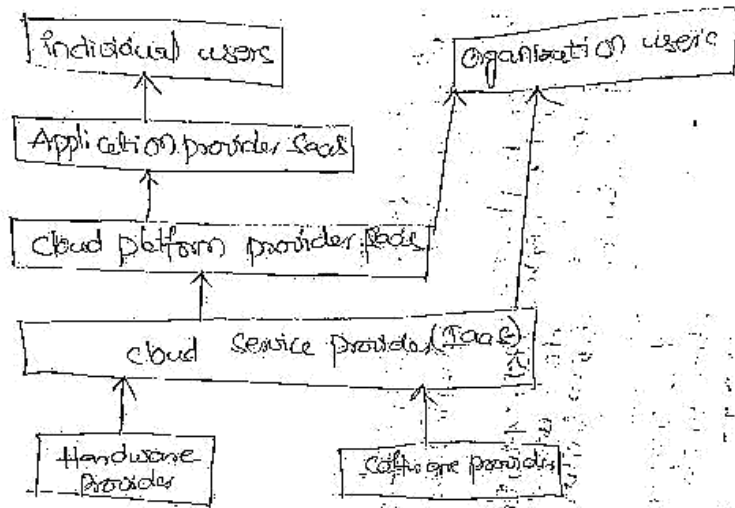 individual users
Organization users
Application provider SaaS
Cloud platform provider PaaS
cloud service provider (IaaS)
Hardware
provider
Software provider